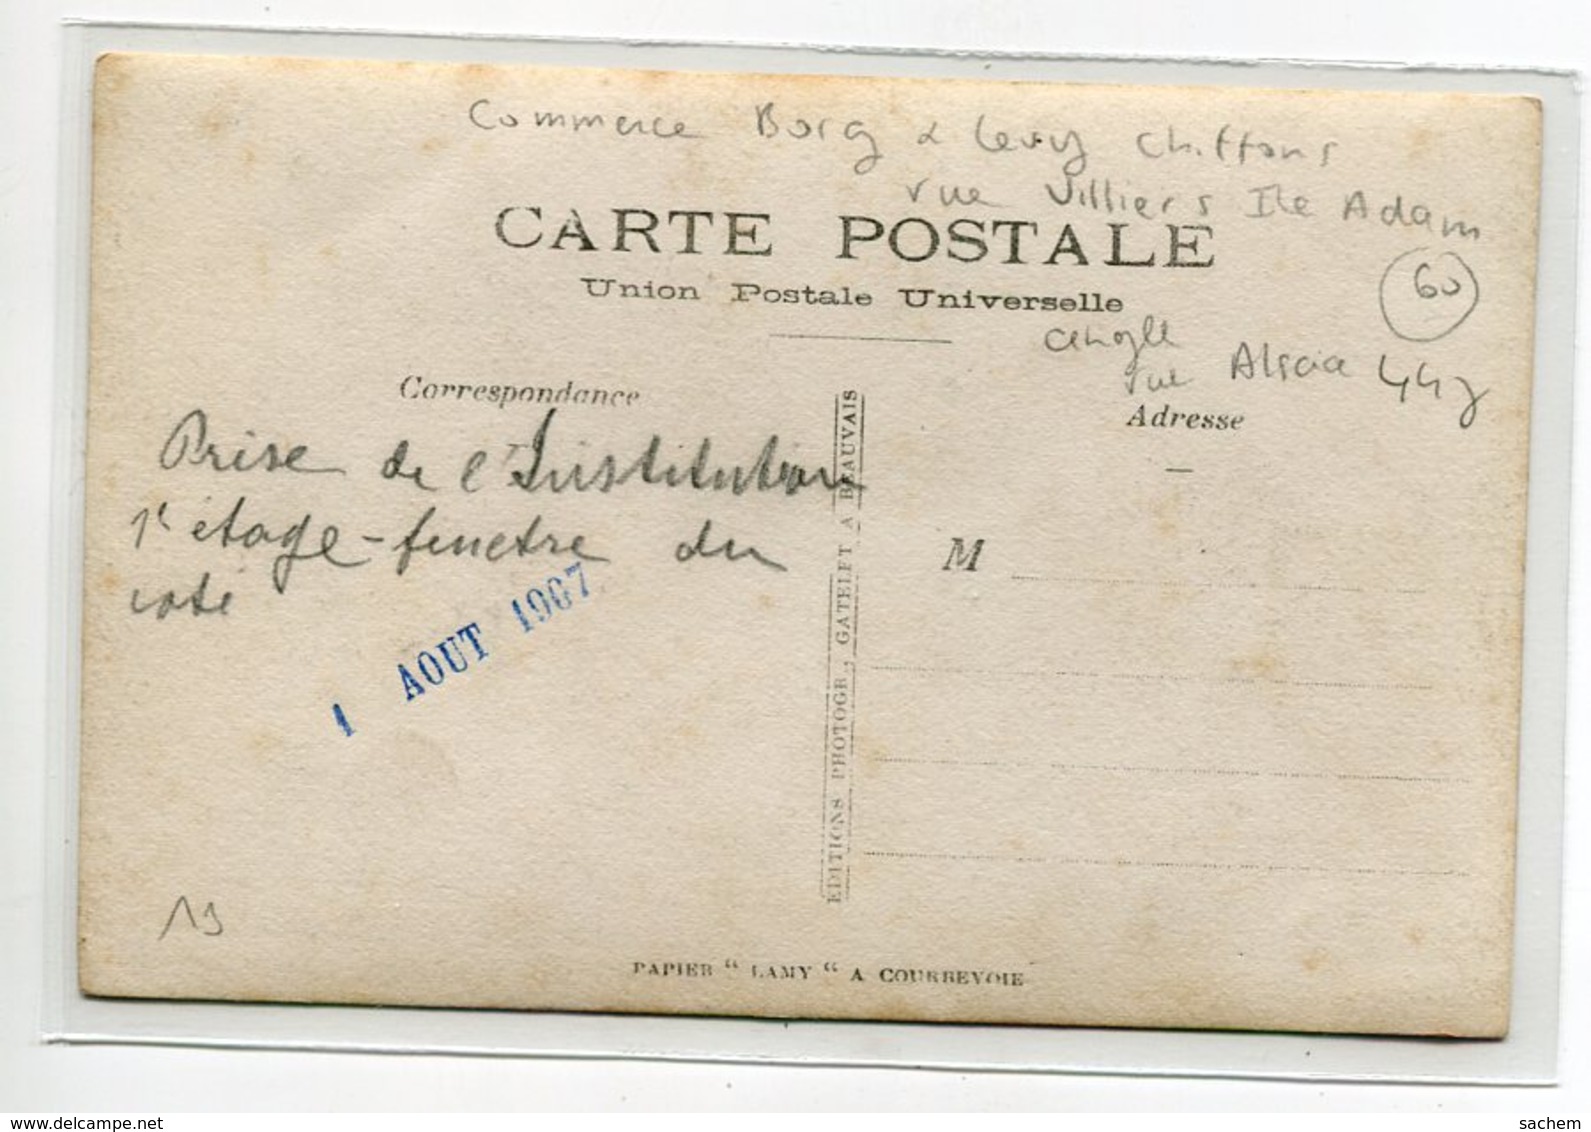 Commerce Borg & Levy Chiffons
rue Villiers Ile Adam
CARTE POSTALE
60
Union Postale Universelle
angle
rue Alsace 447
Correspondance
Adresse
Prise de l'Institution
1r étage - fenetre du
coté
1 AOUT 1907
M
EDITIONS PHOTOGR., GATELET A BEAUVAIS
19
PAPIER “ LAMY “ A COURBEVOIE
www.delcampe.net
sachem